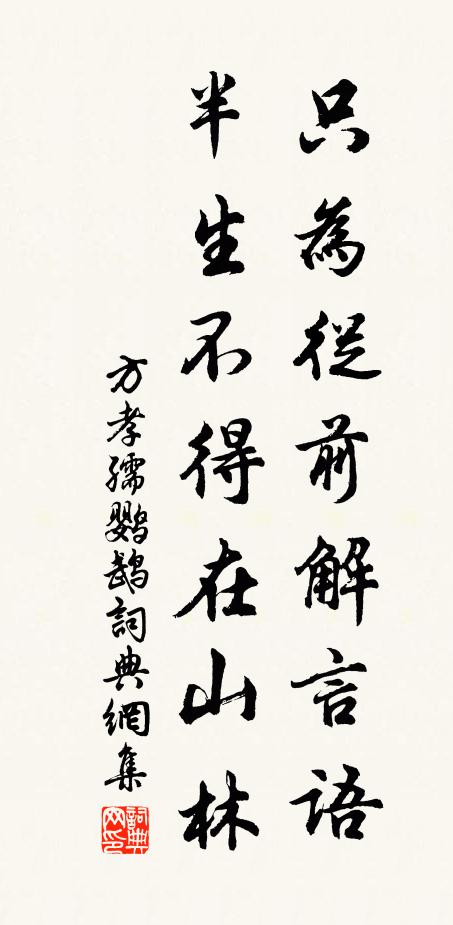 只為從前解言語
半生不得在山林
方孝孺鸚鵡詞典網集
詞典網印